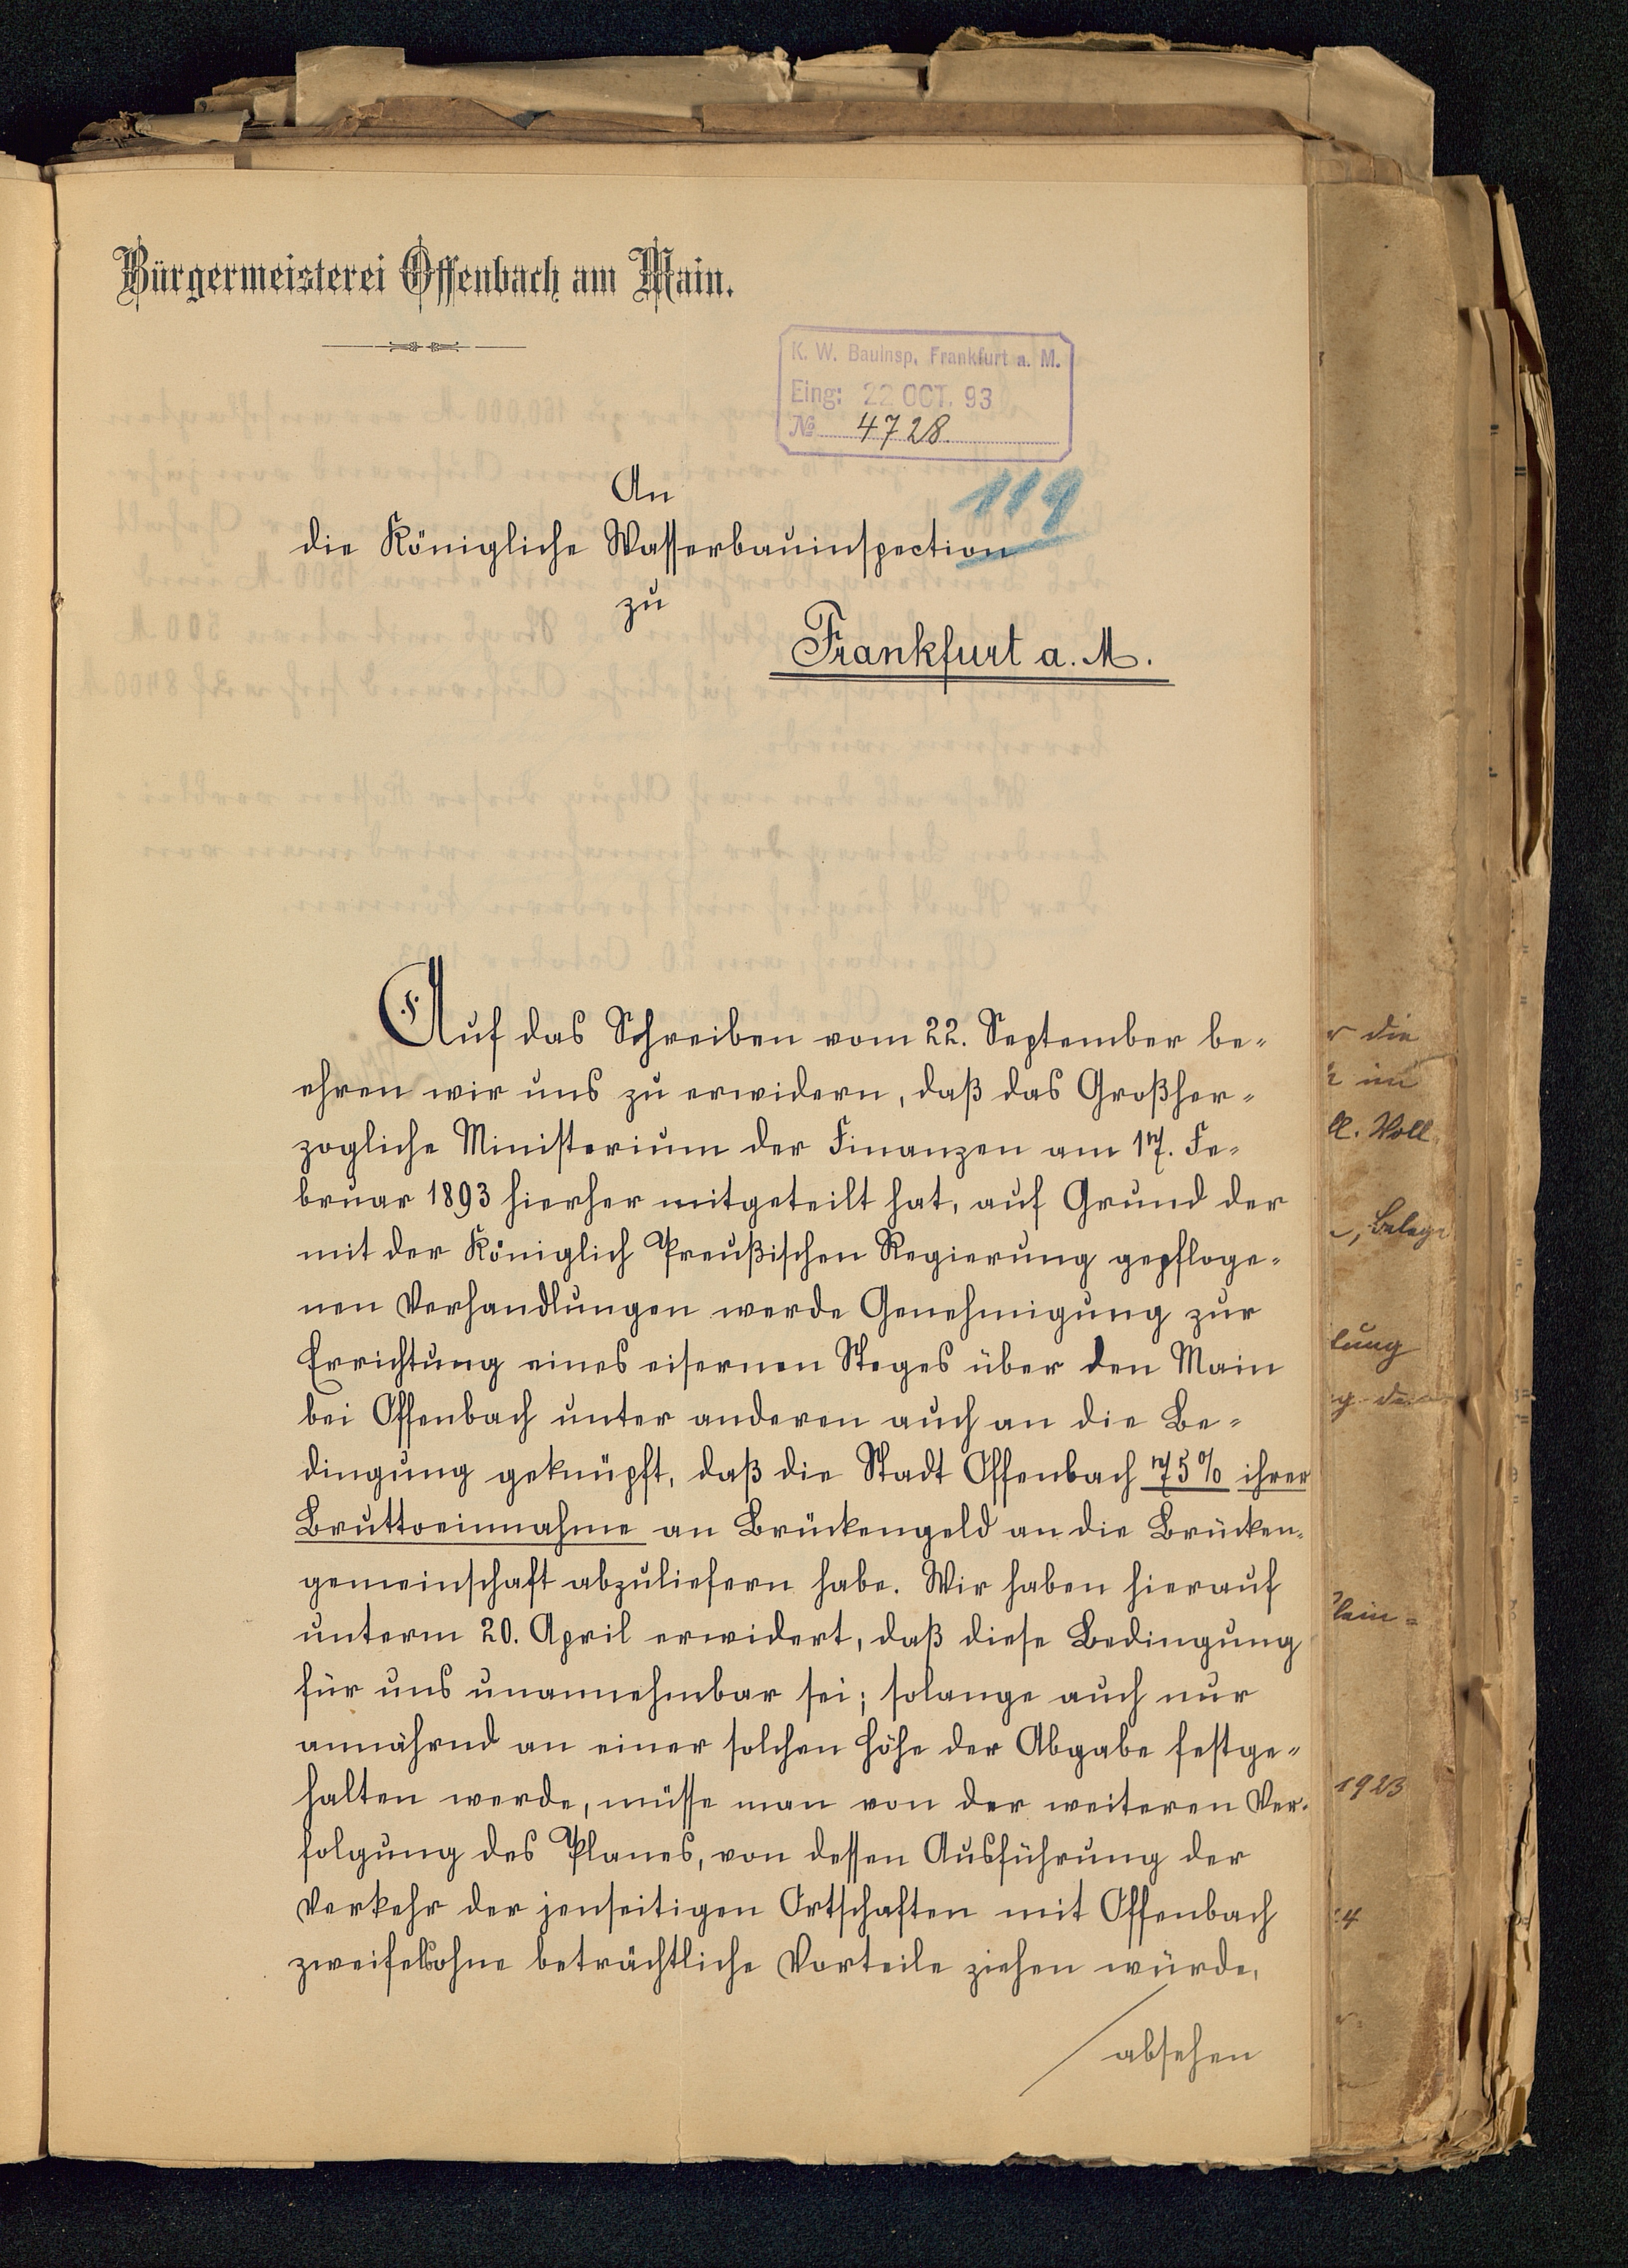 Bürgermeisterei Offenbach am Main.
K. W. Bauinsp. Frankfurt a. M.
Eing: 22 OCT. 93
No 4728.
119
An
die Königliche Wasserbauinspection
zu
Frankfurt a. M.
Auf das Schreiben vom 22. September be-
ehren wir uns zu erwidern, daß das Großher-
zogliche Ministerium der Finanzen am 17. Fe-
bruar 1893 hierher mitgeteilt hat, auf Grund der
mit der Königlich Preußischen Regierung gepfloge-
nen Verhandlungen werde Genehmigung zur
Errichtung eines eisernen Steges über den Main
bei Offenbach unter anderen auch an die Be-
dingung geknüpft, daß die Stadt Offenbach 75% ihrer
Bruttoeinnahme an Brückengeld an die Brücken-
gemeinschaft abzuliefern habe. Wir haben hierauf
unterm 20. April erwidert, daß diese Bedingung
für uns unannehmbar sei; solange auch nur
annährnd an einer solchen Höhe der Abgabe festge-
halten werde, müsse man von der weiteren Ver-
folgung des Planes, von dessen Ausführung der
Verkehr der jenseitigen Ortschaften mit Offenbach
zweifelsohne beträchtliche Vorteile ziehen würde,
absehen
r die
im
ll. Voll
, Belege
lung
lein=
1923
4